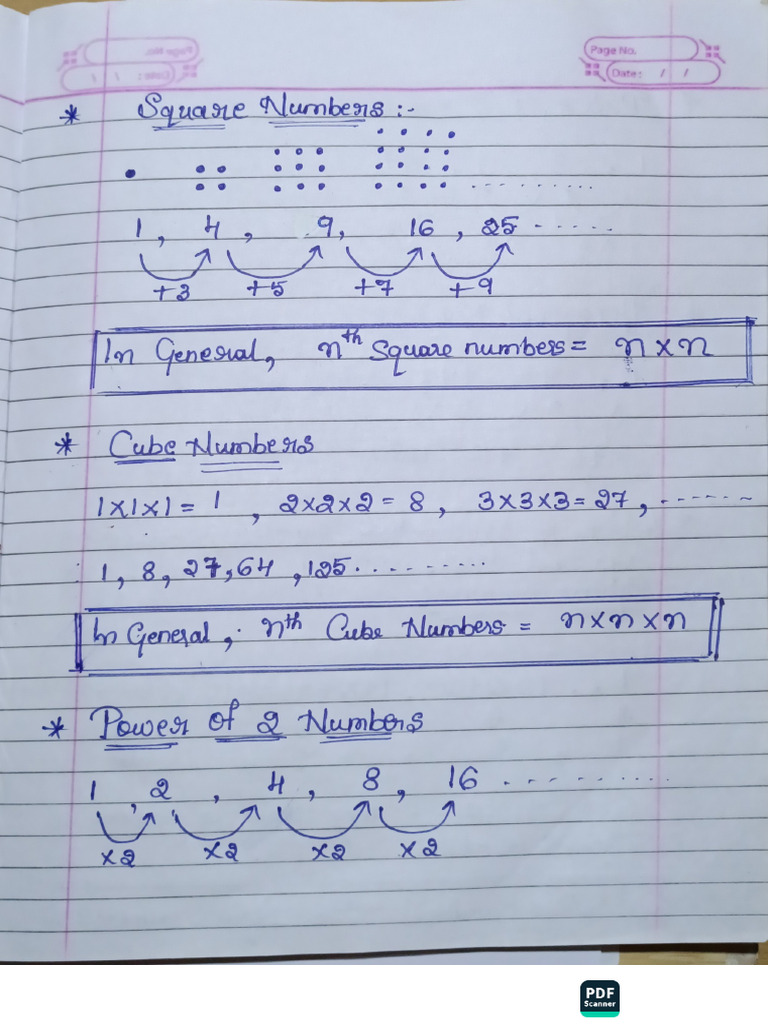 Page No.
Date: / /
* Square Numbers :-
1, 4, 9, 16, 25 ......
+3 +5 +7 +9
In General, nth Square numbers = n × n
* Cube Numbers
1×1×1 = 1 , 2×2×2 = 8, 3×3×3 = 27, ......
1, 8, 27, 64, 125.........
In General, nth Cube Numbers = n × n × n
* Power of 2 Numbers
1, 2, 4, 8, 16 .........
×2 ×2 ×2 ×2
PDF
Scanner